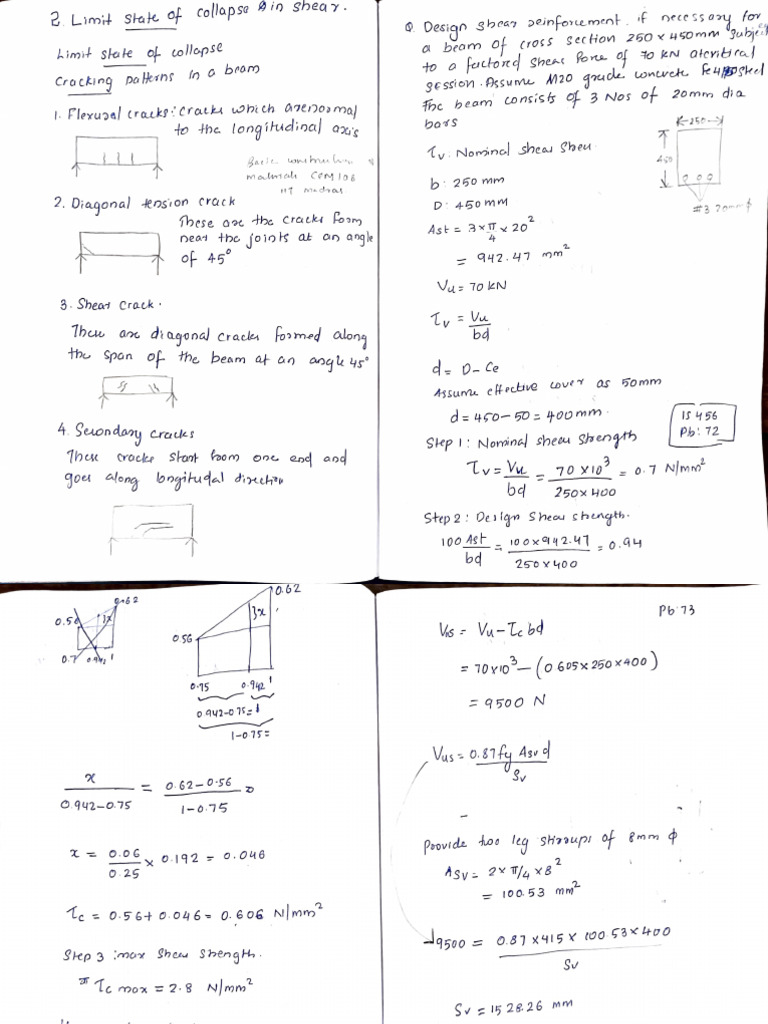 2. Limit State of collapse in shear.
Limit state of collapse
Cracking patterns in a beam
1. Flexural cracks: Cracks which are normal
to the longitudinal axis
2. Diagonal tension crack
These are the cracks form
near the joints at an angle
of 45°
3. Shear crack.
These are diagonal cracks formed along
the span of the beam at an angle 45°
4. Secondary cracks
These cracks start from one end and
goes along longitudal direction
Q. Design shear reinforcement if necessary for
a beam of cross section 250 x 450mm subject
to a factored shear force of 70 KN at critical
session. Assume M20 grade concrete Fe 415 steel
The beam consists of 3 Nos of 20mm dia
bars
τv. Nominal shear
b: 250 mm
D: 450 mm
Ast = 3 x π/4 x 20²
= 942.47 mm²
Vu = 70 KN
τv = Vu/bd
d = D - Ce
Assume effective cover as 50mm
d = 450 - 50 = 400 mm.
250
450
#3 20mm φ
IS 456
Pb: 72
Step 1: Nominal shear strength
τv = Vu/bd = 70 x 10³/250 x 400 = 0.7 N/mm²
Step 2: Design Shear strength.
100 Ast/bd = 100 x 942.47/250 x 400 = 0.94
0.62
0.56
3x
0.75 0.942 1
0.942-0.75=
1-0.75=
x/0.942-0.75 = 0.62-0.56/1-0.75
x = 0.06/0.25 x 0.192 = 0.046
τc = 0.56 + 0.046 = 0.606 N/mm²
Step 3: max shear strength.
τc max = 2.8 N/mm²
Pb: 73
Vus = Vu - τc bd
= 70x10³ - (0.605 x 250 x 400)
= 9500 N
Vus = 0.87 fy Asv d/Sv
Provide two leg stirrups of 8mm φ
Asv = 2 x π/4 x 8²
= 100.53 mm²
9500 = 0.87 x 415 x 100.53 x 400/Sv
Sv = 1528.26 mm